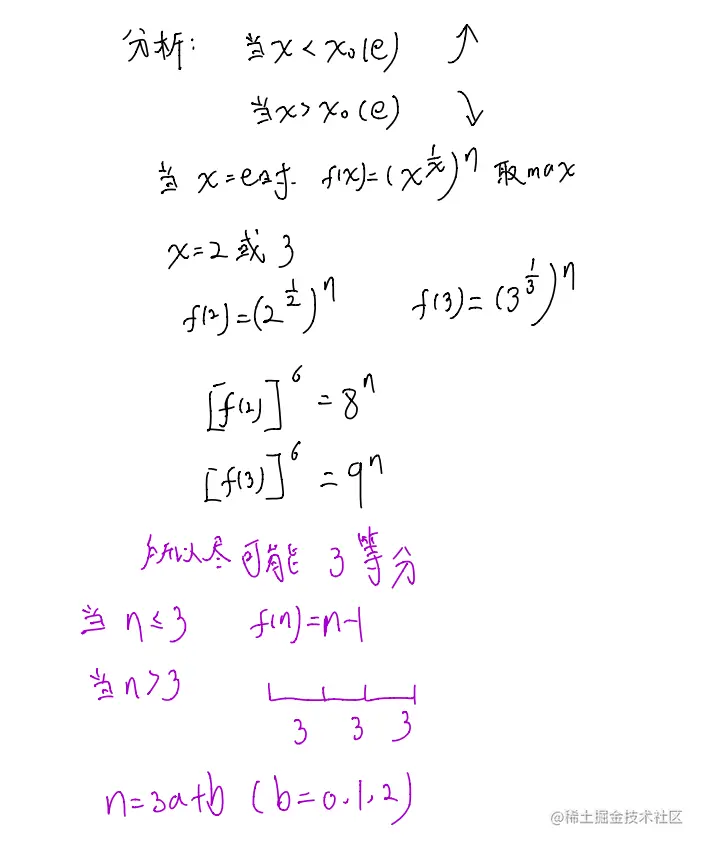 分析: 当 x < x₀(e) ↗
当 x > x₀(e) ↘
当 x = e时. f(x)=(x^{1/x})^n 取max
x=2 或 3
f(2)=(2^{1/2})^n f(3)=(3^{1/3})^n
[f(2)]^6 = 8^n
[f(3)]^6 = 9^n
所以尽可能 3 等分
当 n≤3 f(n)=n-1
当 n>3
3 3 3
n=3a+b (b=0,1,2)
@稀土掘金技术社区